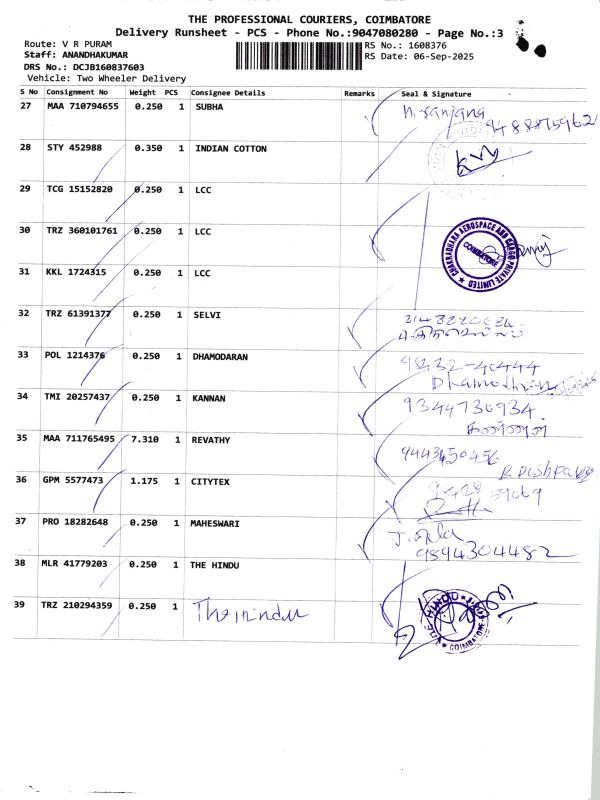 THE PROFESSIONAL COURIERS, COIMBATORE
Delivery Runsheet - PCS - Phone No.:9047080280 - Page No.:3
Route: V R PURAM
RS No.: 1608376
Staff: ANANDHAKUMAR
RS Date: 06-Sep-2025
DRS No.: DCJB160837603
Vehicle: Two Wheeler Delivery
S No Consignment No Weight PCS Consignee Details Remarks Seal & Signature
27 MAA 710794655 0.250 1 SUBHA Niranjana
28 STY 452988 0.350 1 INDIAN COTTON
29 TCG 15152820 0.250 1 LCC
30 TRZ 360101761 0.250 1 LCC CHAKRADHARA AEROSPACE AND CARGO PRIVATE LIMITED COIMBATORE
31 KKL 1724315 0.250 1 LCC
32 TRZ 61391377 0.250 1 SELVI
33 POL 1214376 0.250 1 DHAMODARAN
34 TMI 20257437 0.250 1 KANNAN 9344736934
35 MAA 711765495 7.310 1 REVATHY
36 GPM 5577473 1.175 1 CITYTEX
37 PRO 18282648 0.250 1 MAHESWARI
9894304482
38 MLR 41779203 0.250 1 THE HINDU
39 TRZ 210294359 0.250 1 The Hindu THE HINDU COIMBATORE